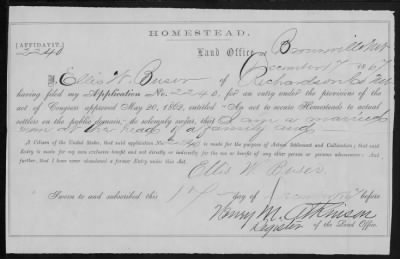 HOMESTEAD.
[AFFIDAVIT.]
2240
Land Office Brownville Neb
December 17 1867
I, Ellis W. Buser of Richardson Co Neb
having filed my Application No. 2240, for an entry under the provisions of the
act of Congress approved May 20, 1862, entitled "An act to secure Homesteads to actual
settlers on the public domain," do solemnly swear, that I am a married
man at the head of a family and
A Citizen of the United States, that said application No. 2240 is made for the purpose of Actual Settlement and Cultivation; that said
Entry is made for my own exclusive benefit and not directly or indirectly for the use or benefit of any other person or persons whomsoever: And
further, that I have never abandoned a former Entry under this Act.
Ellis W Buser
Sworn to and subscribed this 17 day of December 1867 before
Henry M. Atkinson
Register of the Land Office.